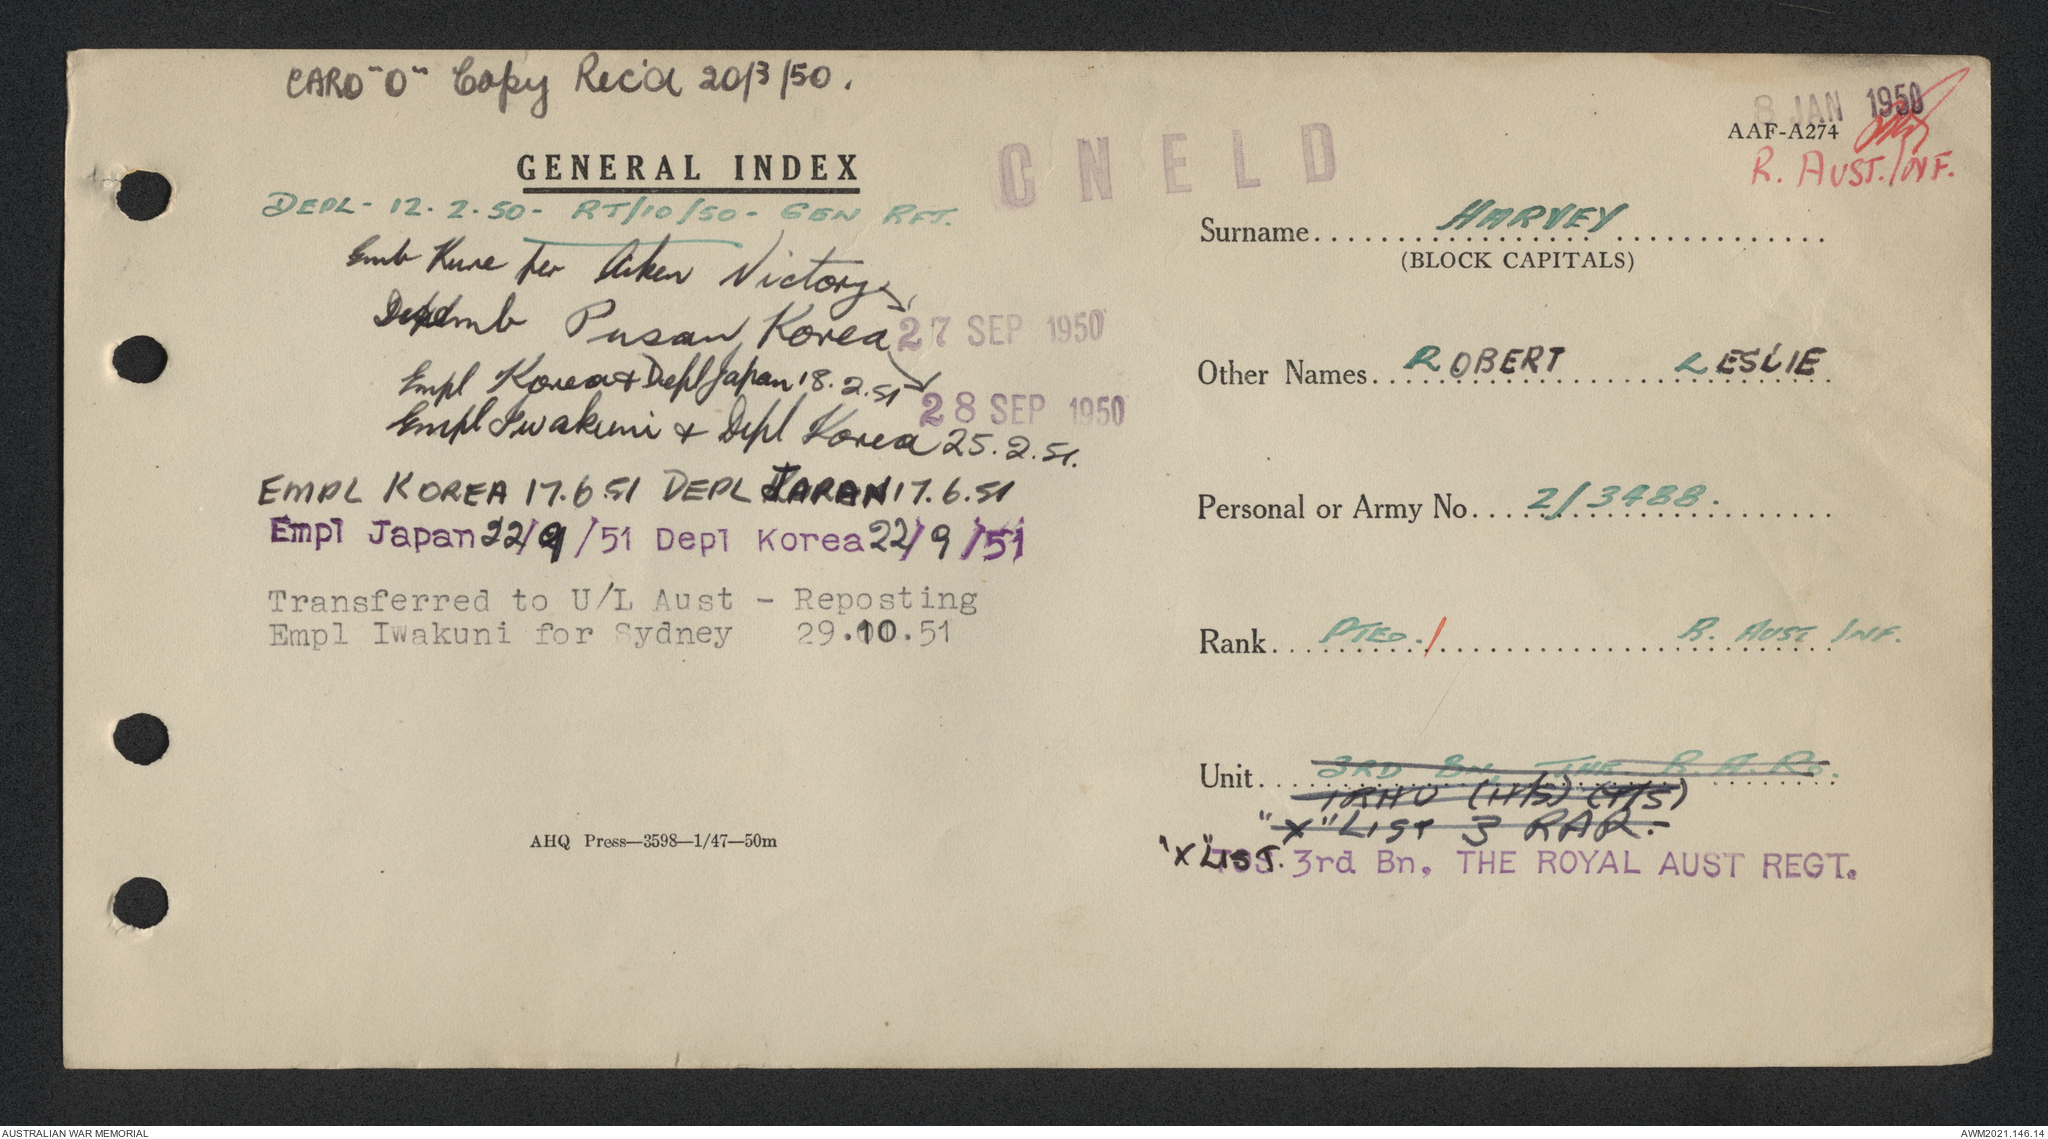 CARD "O" Copy Rec'd 20/3/50.
8 JAN 1950
AAF-A274
R. AUST. INF.
GENERAL INDEX
CNELD
DEPL - 12.2.50 - RT/10/50 - GEN RFT.
Emb Kure per Aiken Victory
27 SEP 1950
Pusan Korea
28 SEP 1950
Empl Korea & Depl Japan 18.2.51
Empl Iwakuni & Depl Korea 25.2.51.
EMPL KOREA 17.6.51 DEPL JAPAN 17.6.51
Empl Japan 22/9/51 Depl Korea 22/9/51
Transferred to U/L Aust - Reposting
Empl Iwakuni for Sydney 29.10.51
AHQ Press—3598—1/47—50m
Surname HARVEY
(BLOCK CAPITALS)
Other Names ROBERT LESLIE
Personal or Army No. 2/3488.
Rank PTED. / R. AUST INF.
Unit 3RD BN, THE R.A.R.
1RHU (H/S) (Y/S)
"X" LIST 3 RAR.-
"X" LIST. 3rd Bn, THE ROYAL AUST REGT.
AUSTRALIAN WAR MEMORIAL
AWM2021.146.14